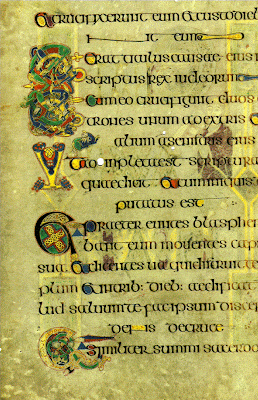 et crucifixerunt eum et custodieb
nt eum
Erat titulus causae eius
scriptus rex iudeorum
et cum eo crucifigunt duos
trones unum a dextris et
alium a sinistris eius
Ut impleretur scriptura
quae dicit et cum iniquis
putatus est
Praetereuntes blasphem
bant eum mouentes capi
sua et dicentes ua qui distruit te
plum et in trib: dieb: aedificat
lud saluum te fac ipsum discen
dens de cruce
Similiter summi sacerdo